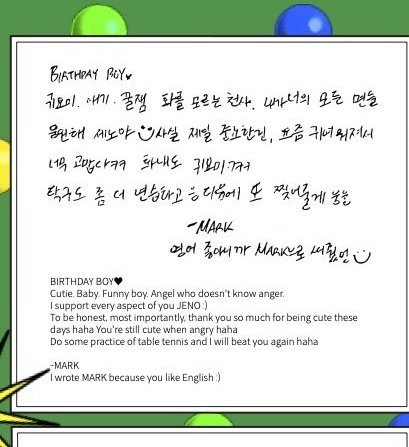 BIRTHDAY BOY♥
귀요미. 애기. 꿀잼 화를 모르는 천사. 내가 너의 모든 면들
응원해 제노야 :) 사실 제일 중요한건, 요즘 귀여워져서
너무 고맙다ㅋㅋ 화내도 귀요미ㅋㅋ
탁구도 좀 더 연습하고 다음에 또 찢어줄게
-MARK
영어 좋아니까 MARK으로 써줬어 :)
BIRTHDAY BOY♥
Cutie. Baby. Funny boy. Angel who doesn't know anger.
I support every aspect of you JENO :)
To be honest, most importantly, thank you so much for being cute these
days haha You're still cute when angry haha
Do some practice of table tennis and I will beat you again haha
-MARK
I wrote MARK because you like English :)